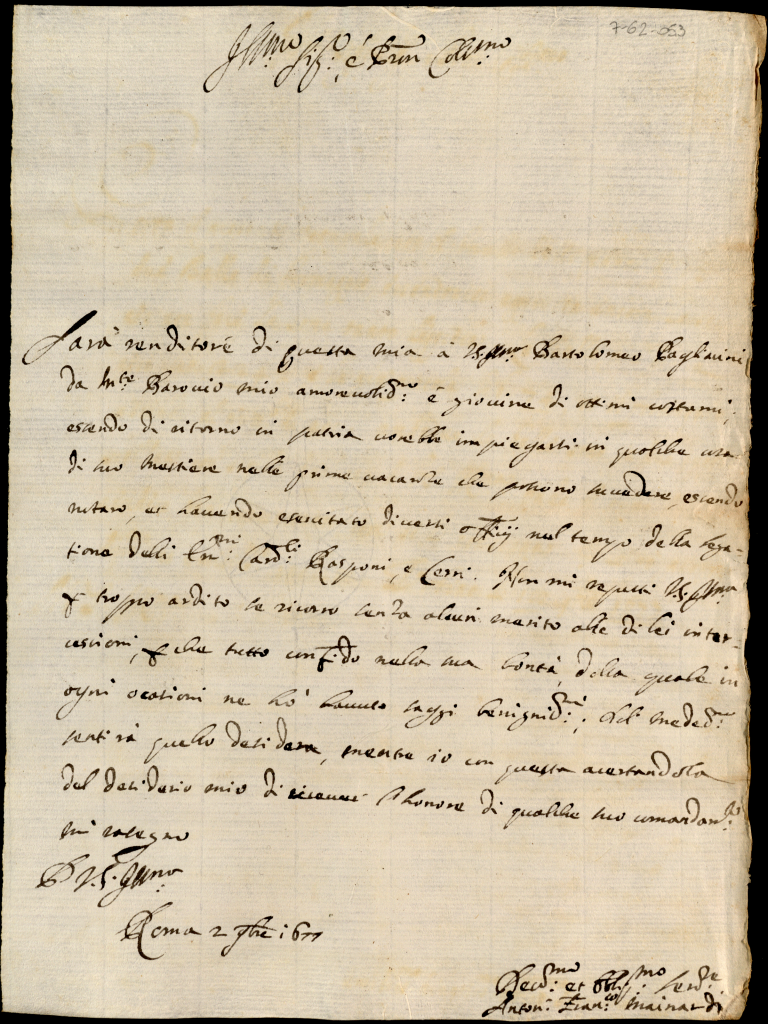 7-62-053
Ill.mo Sig.r e Pron Coll.mo
Sarà renditore di questa mia à V.S. Ill.ma Bartolomeo Pagliarini
da mio amorevoliss.mo è giovine di ottimi costumi,
essendo di ritorno in patria vorebbe impiegarsi in qualche cosa
di suo mestiere nelle prime vacanze che possono succedere, essendo
notaro, et havendo esercitato diversi offitij nel tempo della lega-
tione delli Em.mi Card.li Rasponi, e Cerri. Non mi reputi V.S. Ill.ma
p troppo ardito se ricorro senza alcun merito alle di lei inter-
cessioni, p che tutto confido nella sua bontà, della quale in
ogni ocasioni ne hò havuto saggi benigniss.mi; dal medes.mo
sentirà quello desidera, mentre io con questa acertandola
del desiderio mio di ricever l'honore di qualche suo comandam.to
mi rasegno
D V.S. Ill.ma
Roma 2 9bre 1677
Devs.mo et Obblig.mo Serv.re
Anton: Fran.co Mainardi